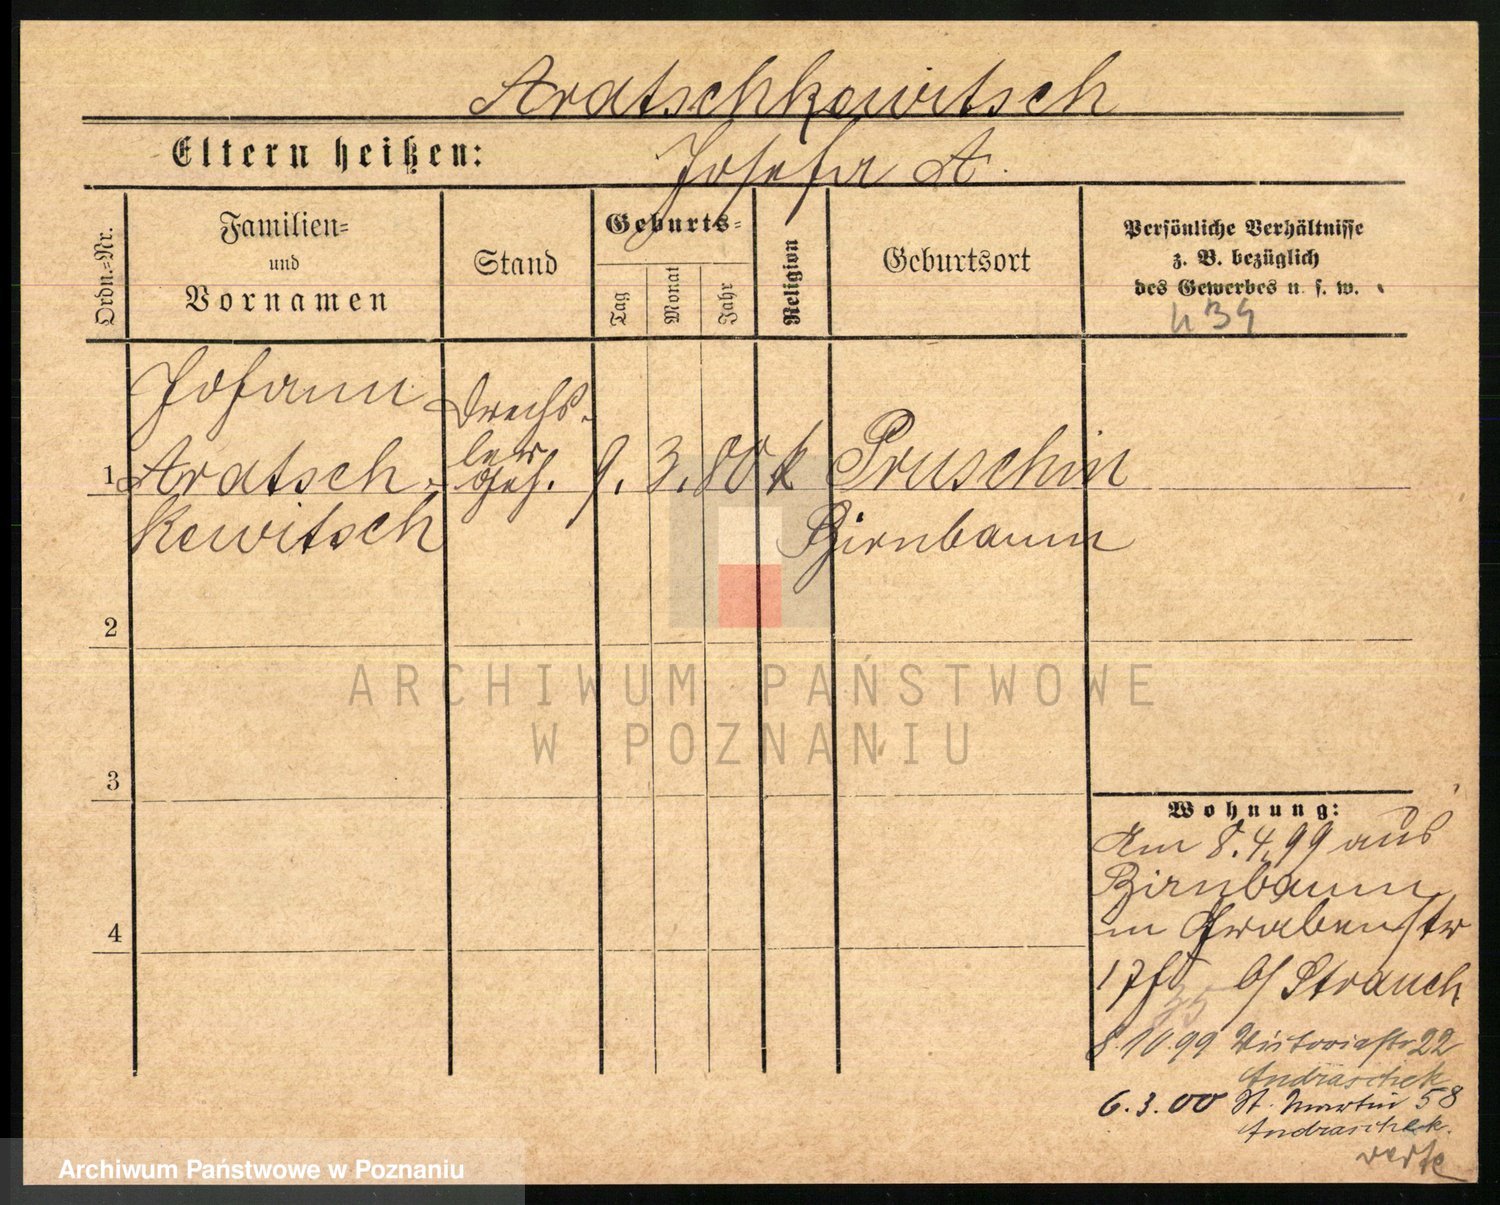 Aratschkewitsch
Eltern heißen:
Josefa A.
Ordn.-Nr.
Familien-
und
Vornamen
Stand
Geburts-
Tag
Monat
Jahr
Religion
Geburtsort
Persönliche Verhältnisse
z. B. bezüglich
des Gewerbes u. s. w.
Johann
Aratsch-
kewitsch
Drechs-
ler
Geh.
1
9. 3. 80 k
Pruschin
Birnbaum
2
3
4
ARCHIWUM PAŃSTWOWE
W POZNANIU
Wohnung:
Am 8.4.99 aus
Birnbaum
in Grabenstr
b/ Strauch
8.10.99 Victoriastr 22
Andraschek
6.3.00 St. Martin 58
Andraschek.
Archiwum Państwowe w Poznaniu